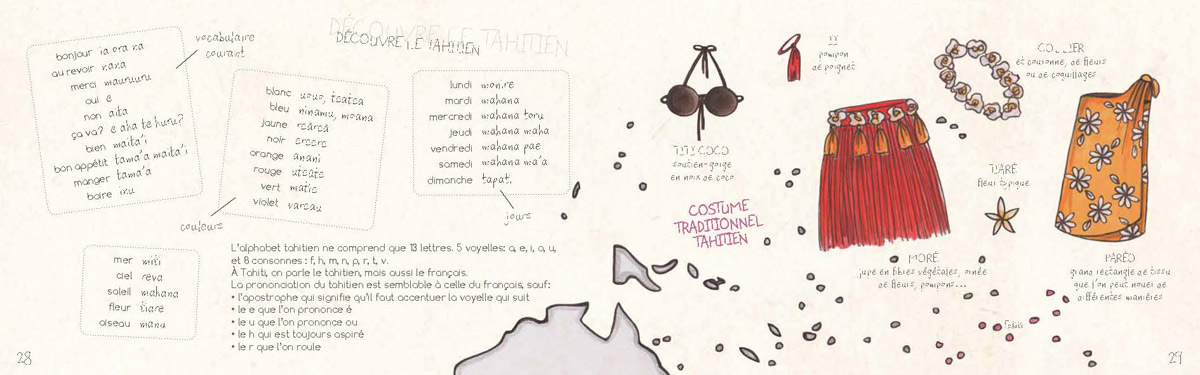 DÉCOUVRE LE TAHITIEN
vocabulaire
courant
bonjour ia ora na
au revoir nana
merci mauruuru
oui e
non aita
ça va? e aha te huru?
bien maita'i
bon appétit tama'a maita'i
manger tama'a
boire inu
blanc
bleu ninamu, moana
jaune
noir
orange anani
rouge
vert
violet vareau
couleurs
lundi
mardi mahana
mercredi mahana toru
jeudi mahana maha
vendredi mahana pae
samedi mahana ma'a
dimanche
jours
mer miti
ciel reva
soleil mahana
fleur tiare
oiseau manu
L'alphabet tahitien ne comprend que 13 lettres. 5 voyelles: a, e, i, o, u,
et 8 consonnes : f, h, m, n, p, r, t, v.
À Tahiti, on parle le tahitien, mais aussi le français.
La prononciation du tahitien est semblable à celle du français, sauf:
• l'apostrophe qui signifie qu'il faut accentuer la voyelle qui suit
• le e que l'on prononce é
• le u que l'on prononce ou
• le h qui est toujours aspiré
• le r que l'on roule
28
soutien-gorge
en noix de coco
pompon
de poignet
COLLIER
et couronne, de fleurs
ou de coquillages
COSTUME
TRADITIONNEL
TAHITIEN
TIARÉ
fleur typique
MORÉ
jupe en fibres végétales, ornée
de fleurs, pompons...
PARÉO
grand rectangle de tissu
que l'on peut nouer de
différentes manières
29